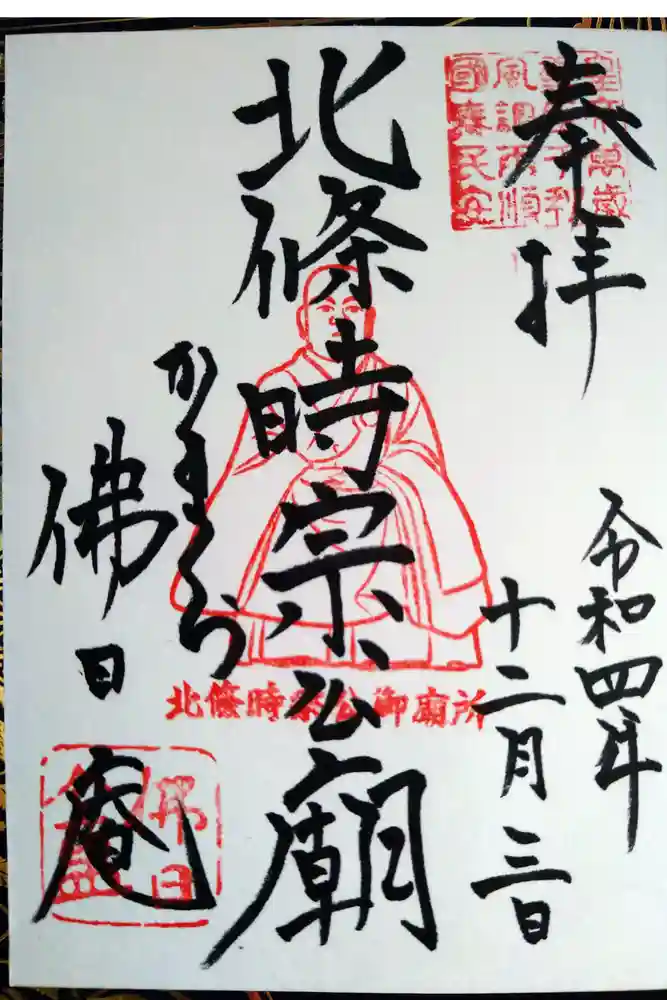 奉拝
令和四年
十二月三日
北條時宗公廟
かまくら
佛日庵
皇帝萬歳
風調雨順
國泰民安
北條時宗公御廟所